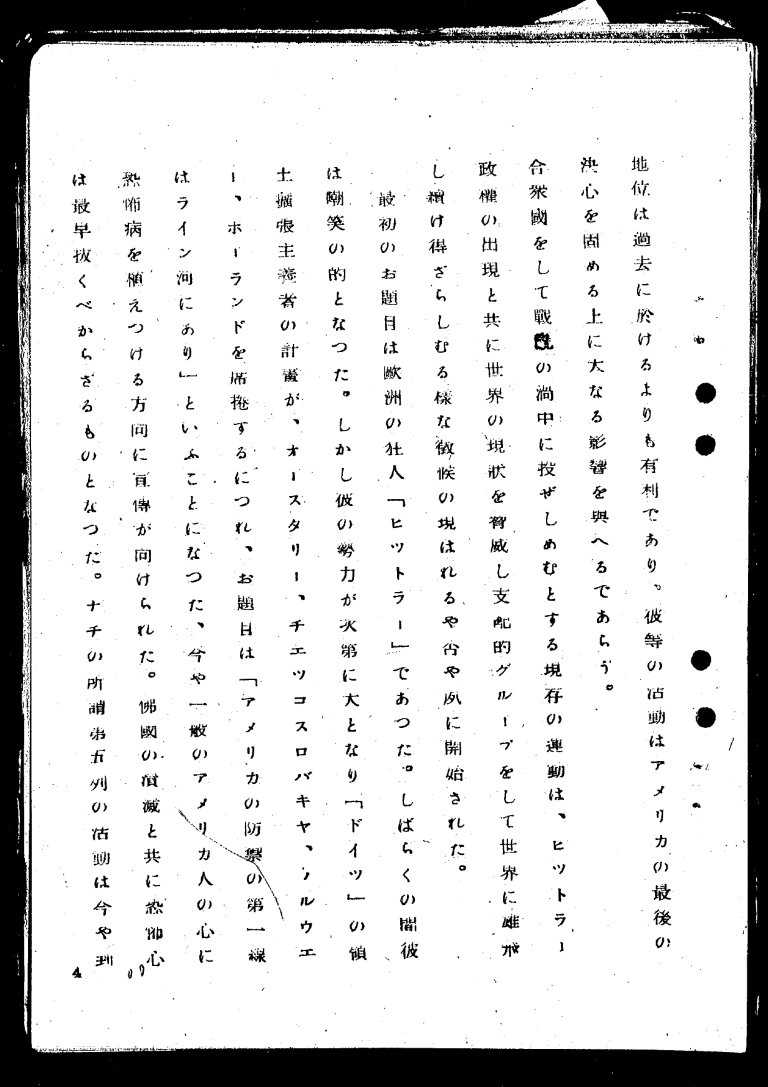 地位は過去に於けるよりも有利であり。彼等の活動はアメリカの最後の
決心を固める上に大なる影響を與へるであらう。
合衆國をして戰の渦中に投ぜしめむとする現存の運動は、ヒツトラー
政權の出現と共に世界の現狀を脅威し支配的グループをして世界に雄飛
し續け得ざらしむる樣な徴候の現はれるや否や夙に開始された。
最初のお題目は歐洲の狂人「ヒツトラー」であつた。しばらくの間彼
は嘲笑の的となつた。しかし彼の勢力が次第に大となり「ドイツ」の領
土擴張主義者の計畫が、オースタリー、チエツコスロバキヤ、ノルウエ
ー、ホーランドを席捲するにつれ、お題目は「アメリカの防禦の第一線
はライン河にあり」といふことになつた、今や一般のアメリカ人の心に
恐怖病を植えつける方向に宣傳が向けられた。佛國の潰滅と共に恐怖心
は最早拔くべからざるものとなつた。ナチの所謂第五列の活動は今や到
4